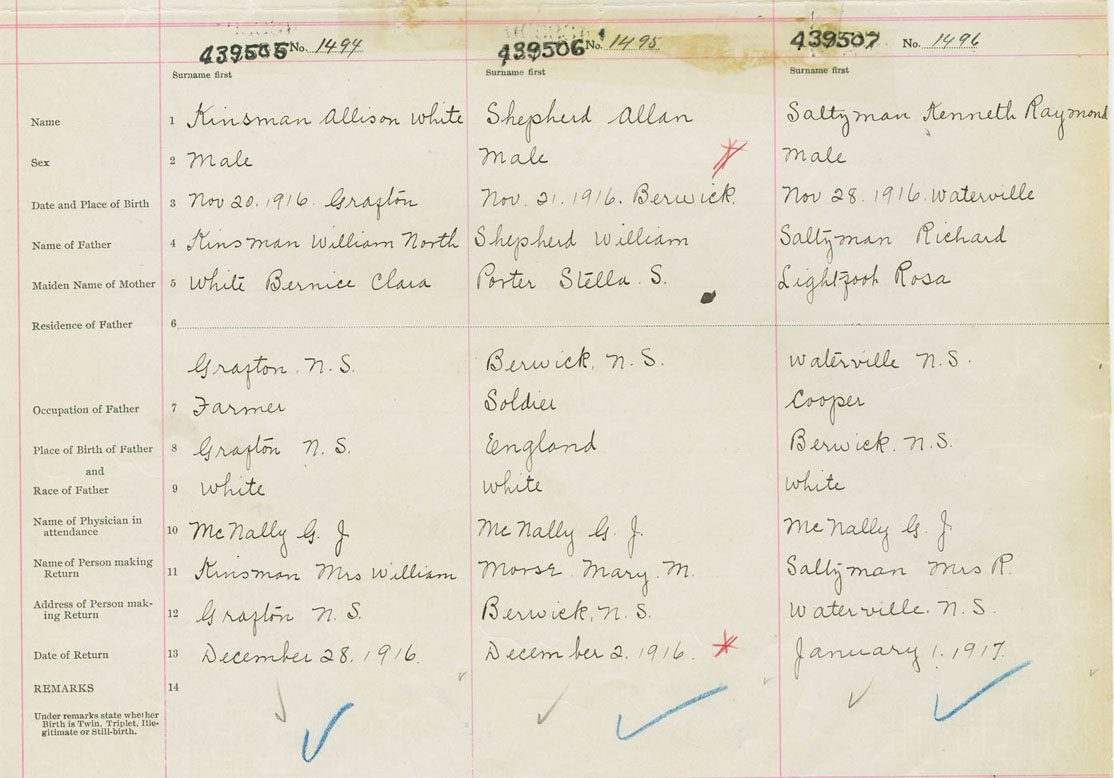 439505 No. 1494 439506 No. 1495 439507 No. 1496
Surname first Surname first Surname first
Name 1 Kinsman Allison White Shepherd Allan Saltzman Kenneth Raymond
Sex 2 Male Male Male
Date and Place of Birth 3 Nov 20. 1916. Grafton Nov. 21. 1916. Berwick. Nov 28. 1916. Waterville
Name of Father 4 Kinsman William North Shepherd William Saltzman Richard
Maiden Name of Mother 5 White Bernice Clara Porter Stella. S. Lightfoot Rosa
Residence of Father 6
Grafton, N.S. Berwick, N.S. Waterville N.S.
Occupation of Father 7 Farmer Soldier Cooper
Place of Birth of Father 8 Grafton N.S. England Berwick. N.S.
and
Race of Father 9 White White White
Name of Physician in
attendance 10 McNally G. J. McNally G. J. McNally G. J.
Name of Person making
Return 11 Kinsman Mrs William Morse. Mary. M. Saltzman Mrs R.
Address of Person mak-
ing Return 12 Grafton N.S. Berwick, N.S. Waterville. N.S.
Date of Return 13 December 28. 1916. December 2. 1916. January 1. 1917.
REMARKS 14
Under remarks state whether
Birth is Twin, Triplet, Ille-
gitimate or Still-birth.